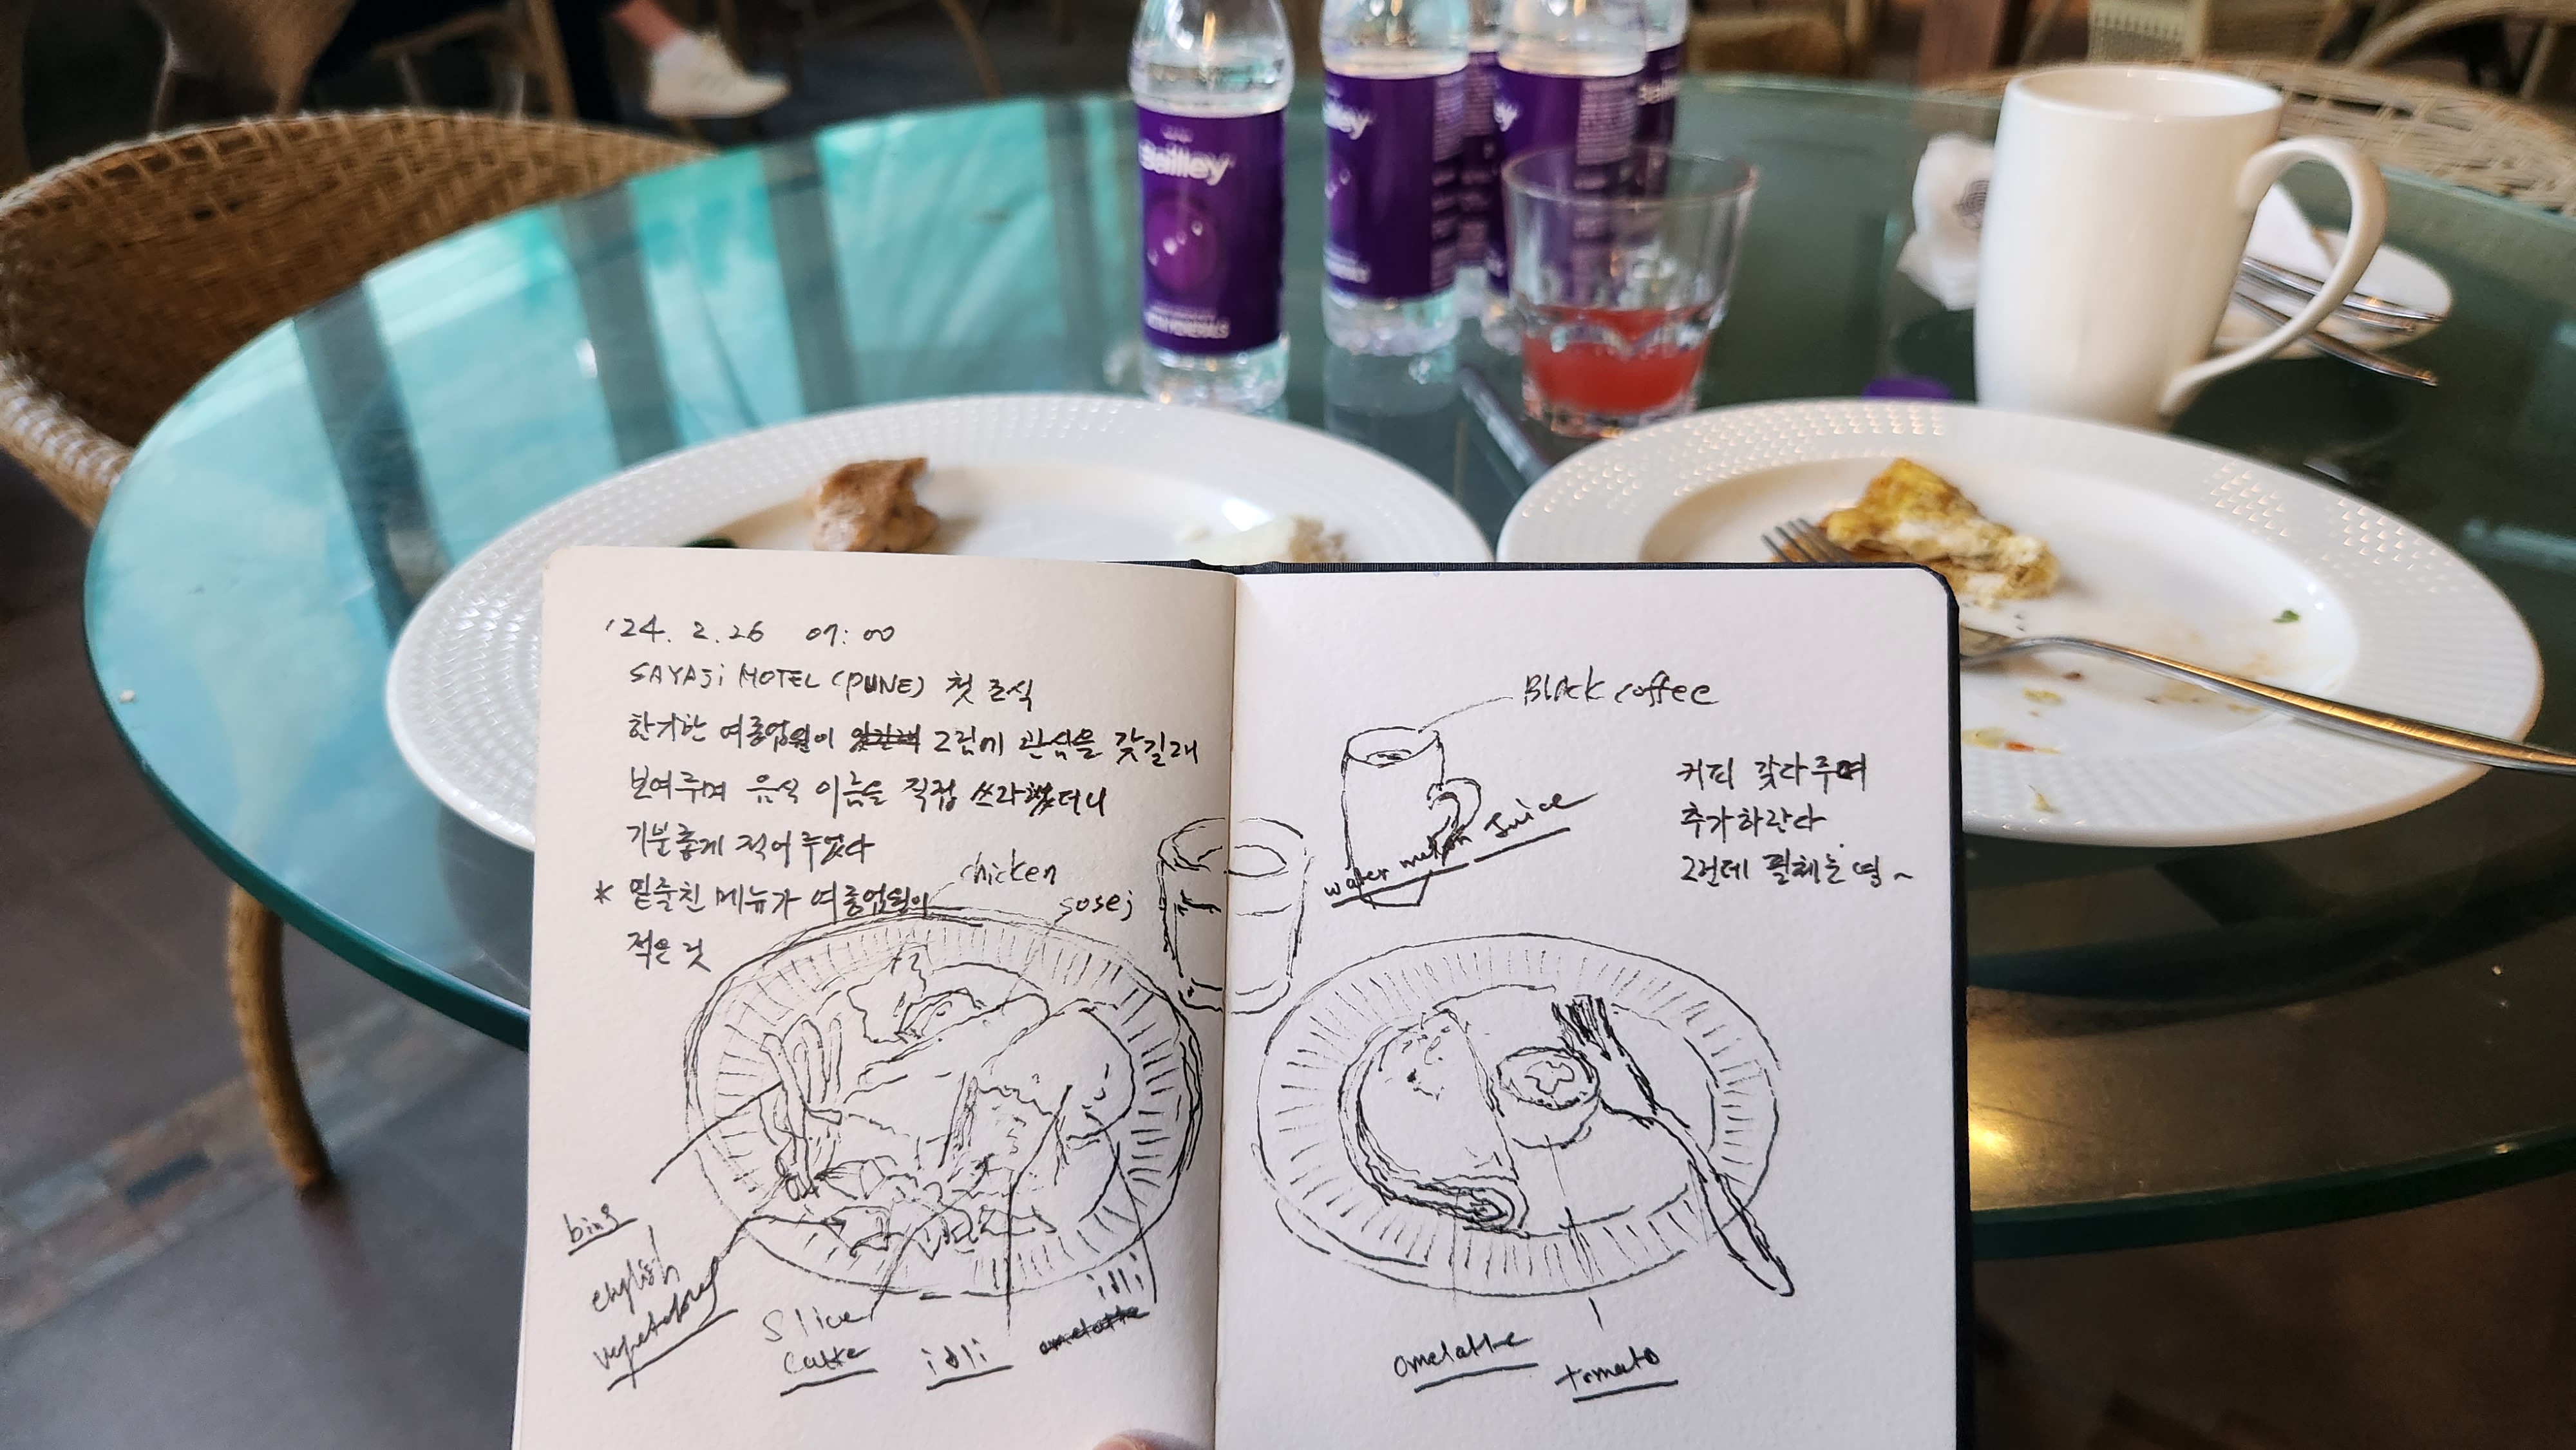 Bailley
'24. 2. 26 07:00
SAYAJi HOTEL (PUNE) 첫 조식
한가한 여종업원이 그림에 관심을 갖길래
보여주며 음식 이름을 직접 쓰라했더니
기분좋게 적어 주었다
* 밑줄친 메뉴가 여종업원이
적은 것
chicken
sosej
bins
english
Slice
idli
idli
omelatte
Black coffee
water melon Juice
커피 갖다주며
추가하란다
그런데 필체는 영~
omelatte
tomato